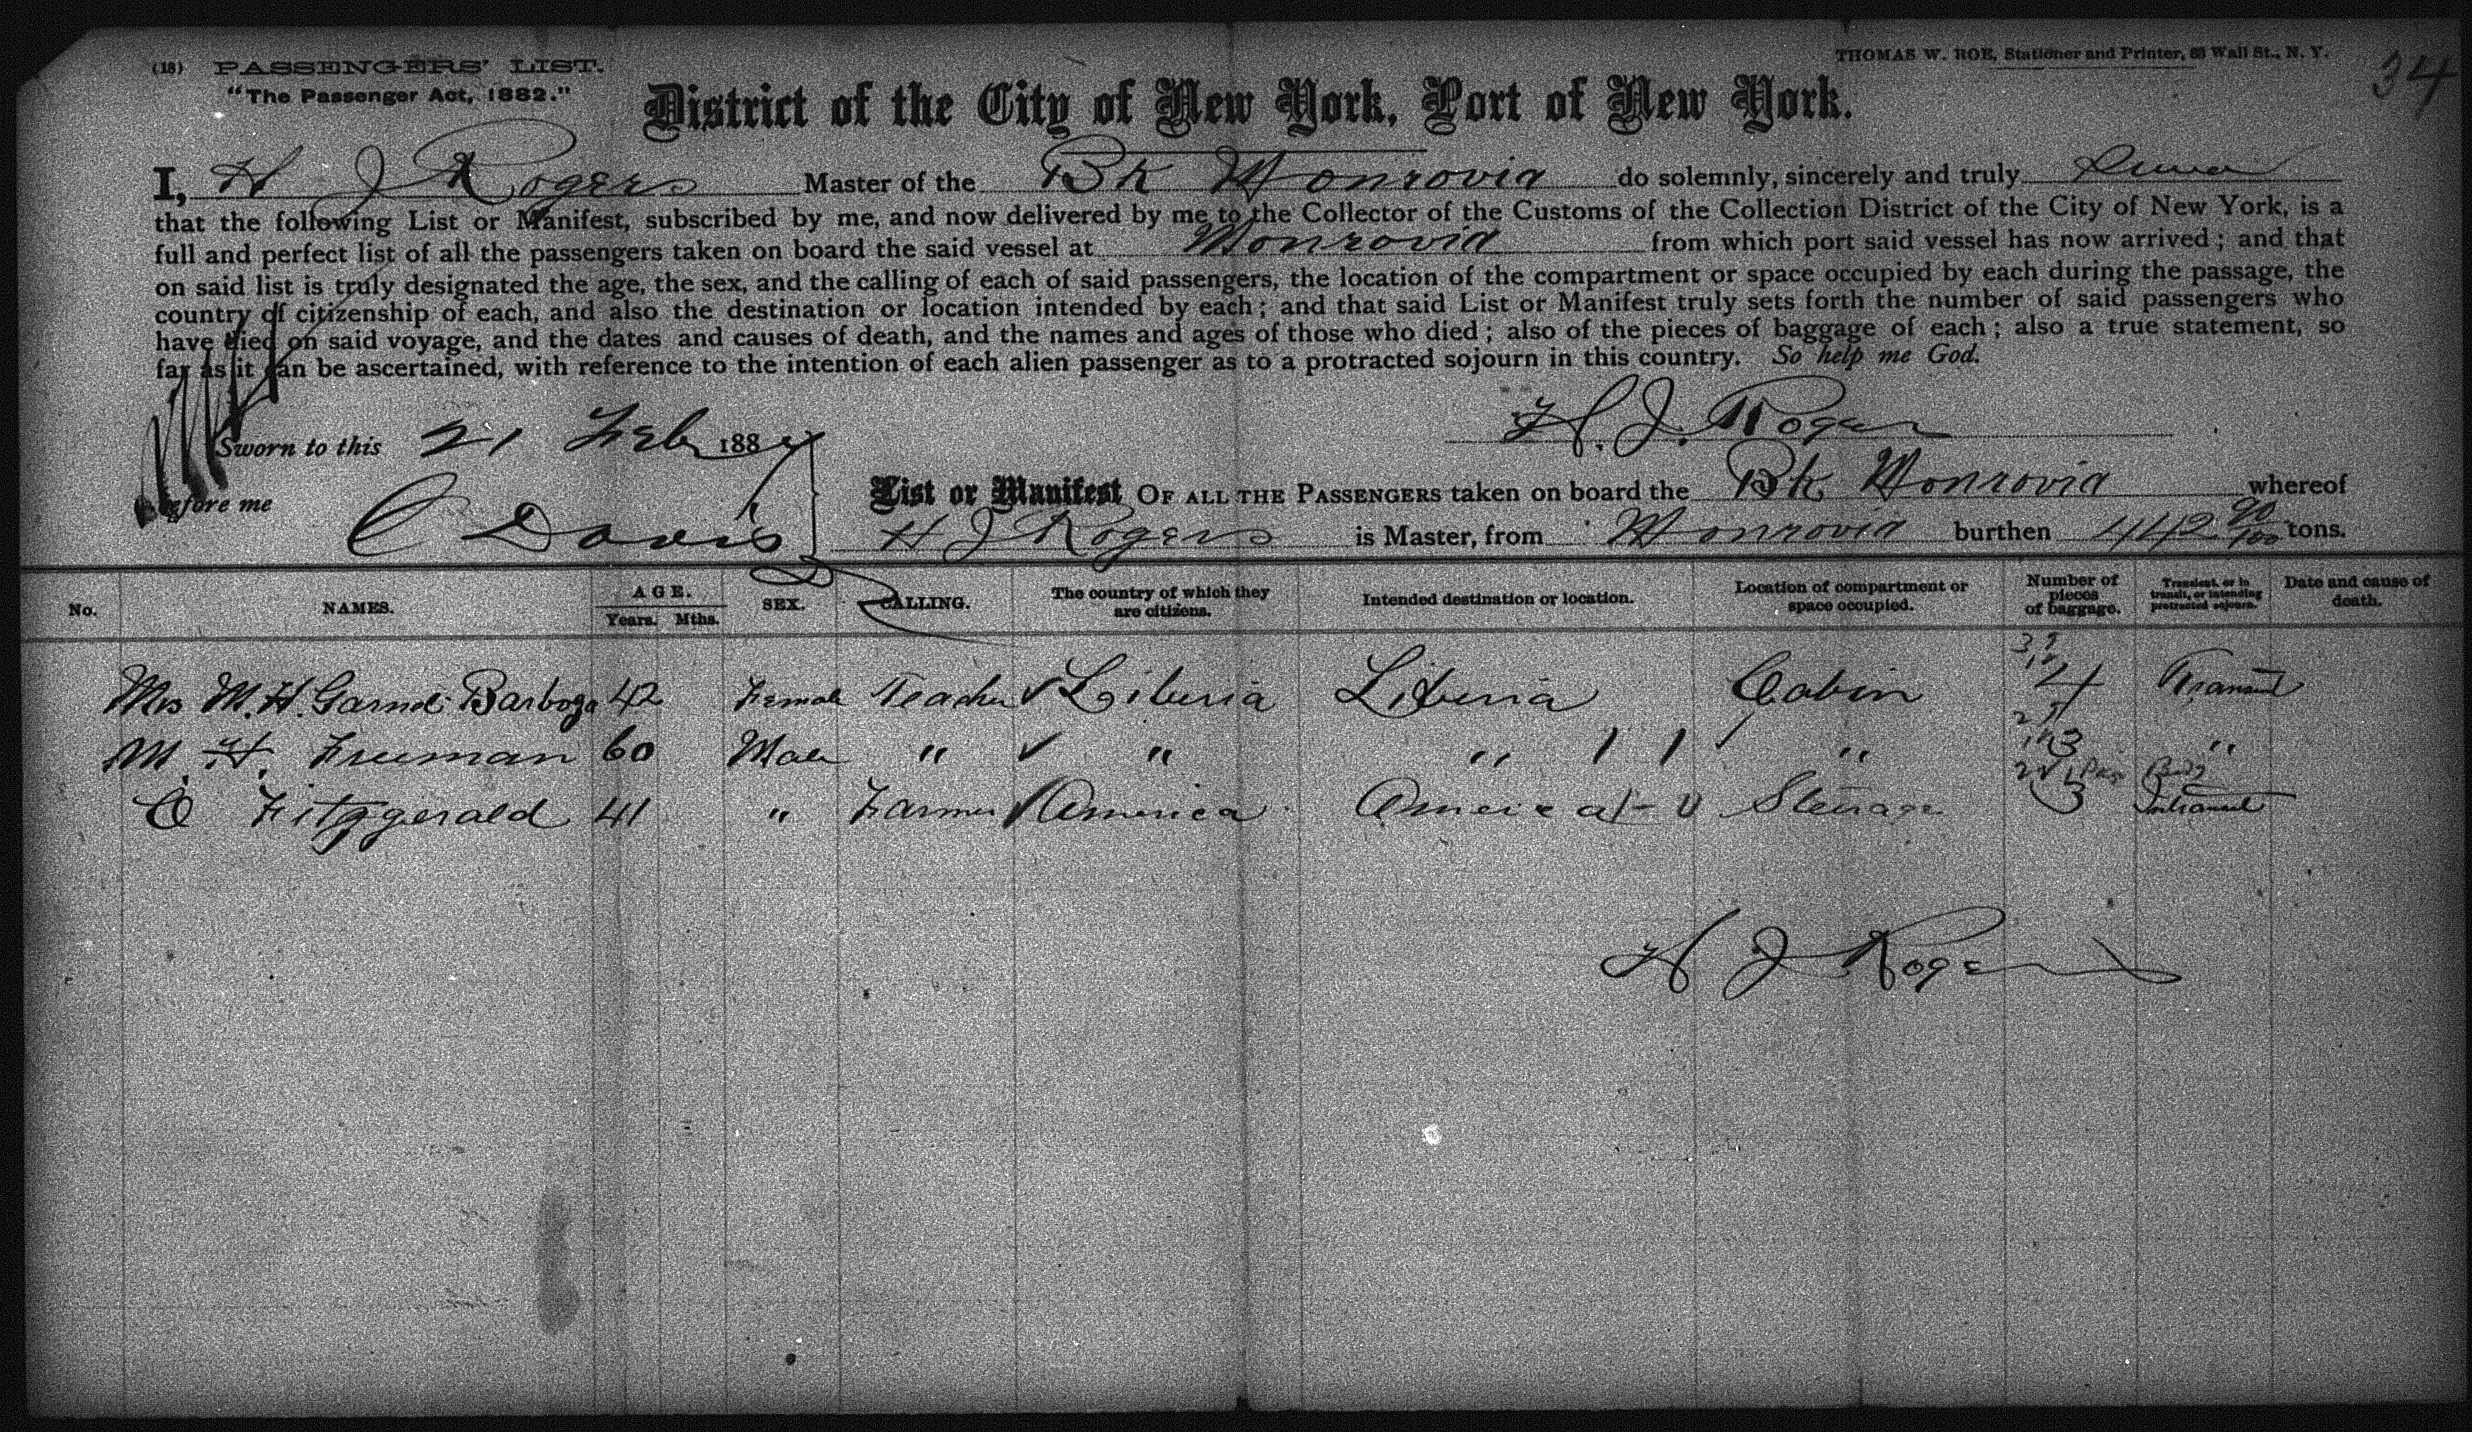 (18) PASSENGERS' LIST.
"The Passenger Act, 1882."
THOMAS W. ROE, Stationer and Printer, 88 Wall St., N. Y.
34
District of the City of New York, Port of New York.
I, H J Rogers Master of the Bk Monrovia do solemnly, sincerely and truly
that the following List or Manifest, subscribed by me, and now delivered by me to the Collector of the Customs of the Collection District of the City of New York, is a
full and perfect list of all the passengers taken on board the said vessel at Monrovia from which port said vessel has now arrived; and that
on said list is truly designated the age, the sex, and the calling of each of said passengers, the location of the compartment or space occupied by each during the passage, the
country of citizenship of each, and also the destination or location intended by each; and that said List or Manifest truly sets forth the number of said passengers who
have died on said voyage, and the dates and causes of death, and the names and ages of those who died; also of the pieces of baggage of each; also a true statement, so
far as it can be ascertained, with reference to the intention of each alien passenger as to a protracted sojourn in this country. So help me God.
H. J. Rogers
Sworn to this 21 Feby 188
before me C Davis
List or Manifest OF ALL THE PASSENGERS taken on board the Bk Monrovia whereof
H J Rogers is Master, from Monrovia burthen 442 90/100 tons.
No. NAMES. AGE. Years. Mths. SEX. CALLING. The country of which they are citizens. Intended destination or location. Location of compartment or space occupied. Number of pieces of baggage. Transient, or in transit, or intending protracted sojourn. Date and cause of death.
Mrs M. H. Garnet Barboza 42 Female Teacher ✓ Liberia Liberia Cabin 4 Transient
M. H. Freeman 60 Male " ✓ " " / / ✓ " 3 "
C Fitzgerald 41 " Farmer ✓ America America Steerage 3
H J Rogers